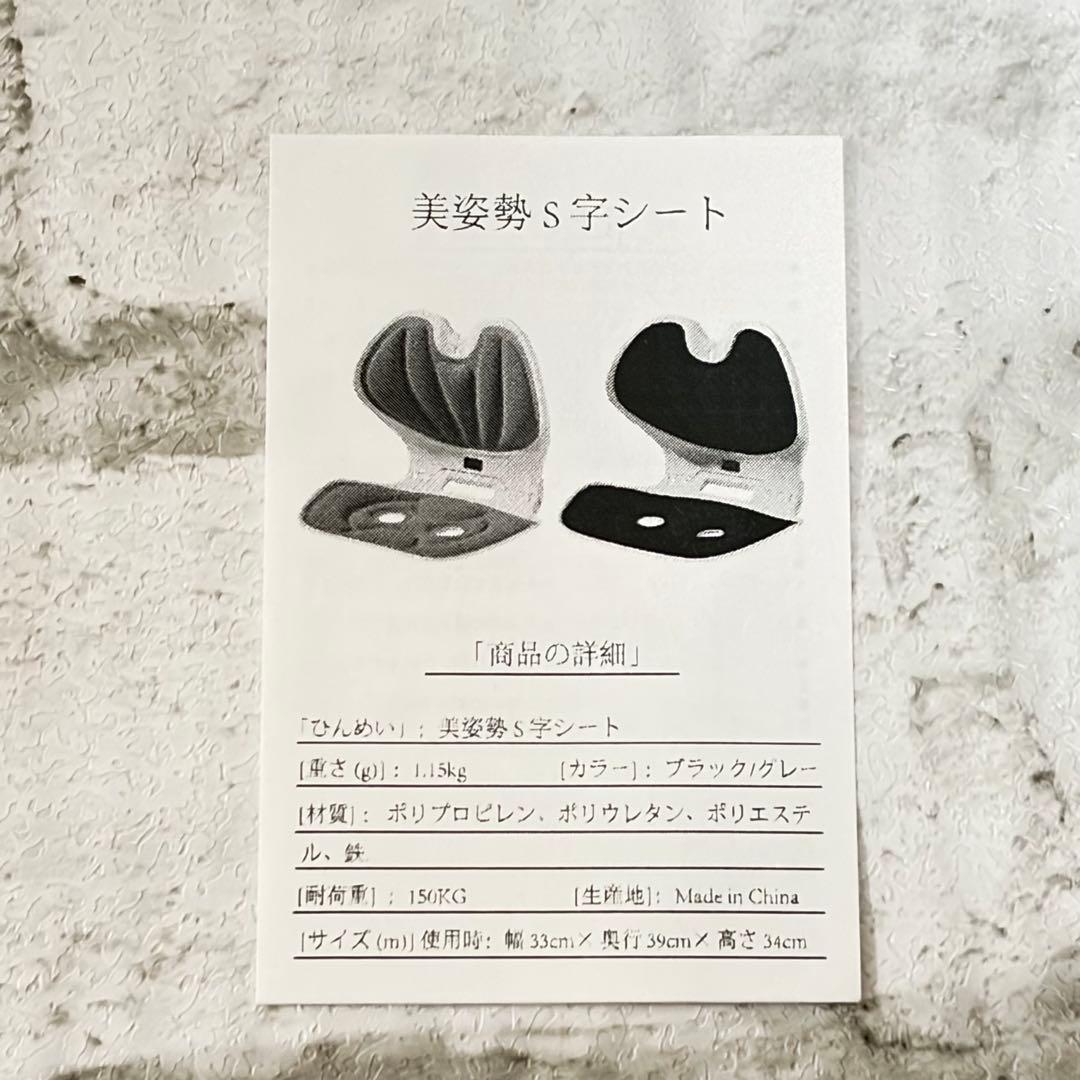 美姿勢S字シート
「商品の詳細」
「ひんめい」: 美姿勢S字シート
[重さ(g)]: 1.15kg [カラー]: ブラック/グレー
[材質]: ポリプロピレン、ポリウレタン、ポリエステ
ル、鉄
[耐荷重]: 150KG [生産地]: Made in China
[サイズ(m)]使用時: 幅33cm×奥行39cm×高さ34cm